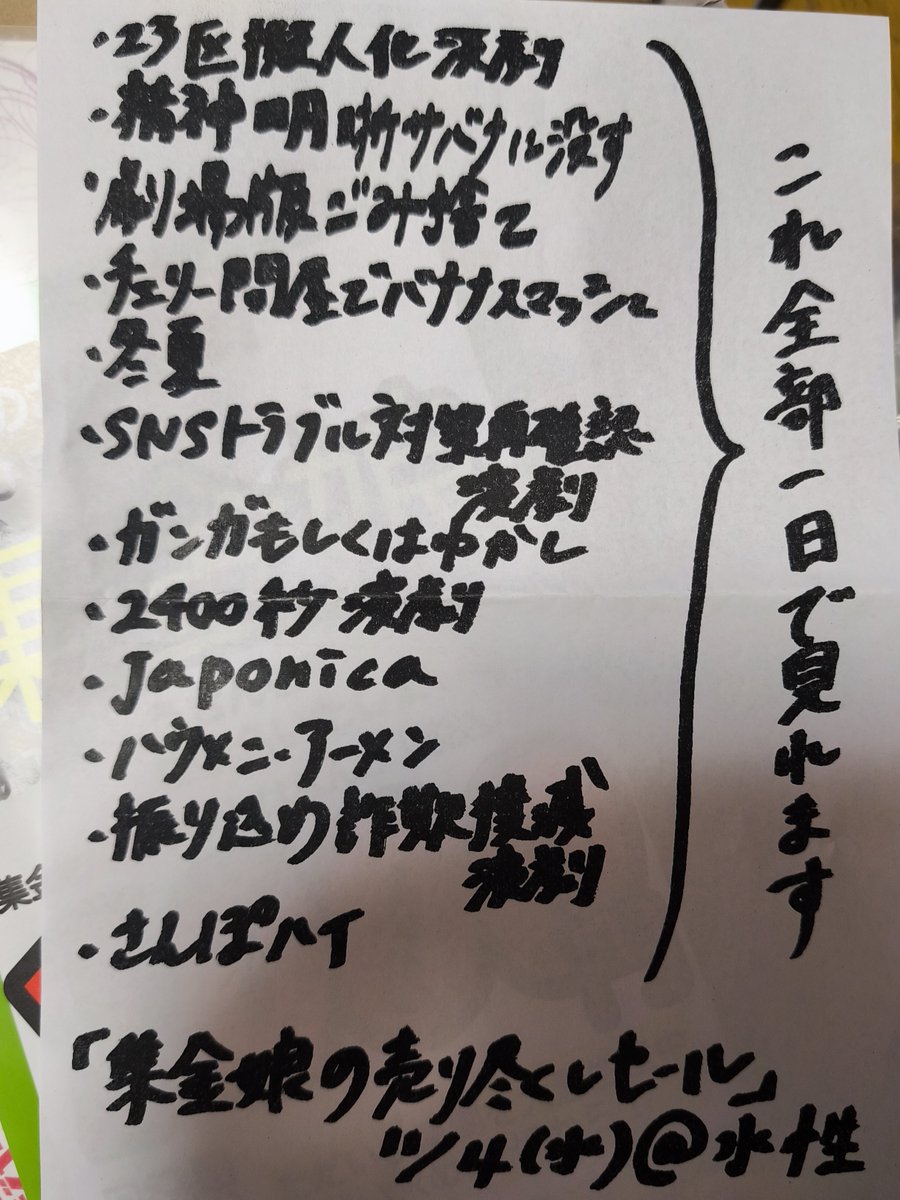 ・23区擬人化演劇
・精神明晰サバナル没す
・劇場版ごみ捨て
・チェリー問屋でバナナスマッシュ
・冬夏
・SNSトラブル対策再確認
演劇
・ガンガもしくはゆかし
・2400秒演劇
・Japonica
・ハウメニーアーメン
・振り込め詐欺撲滅
演劇
・さんぽハイ
これ全部一日で見れます
「集金娘の売り尽くしセール」
11/4(水)@水性
集金